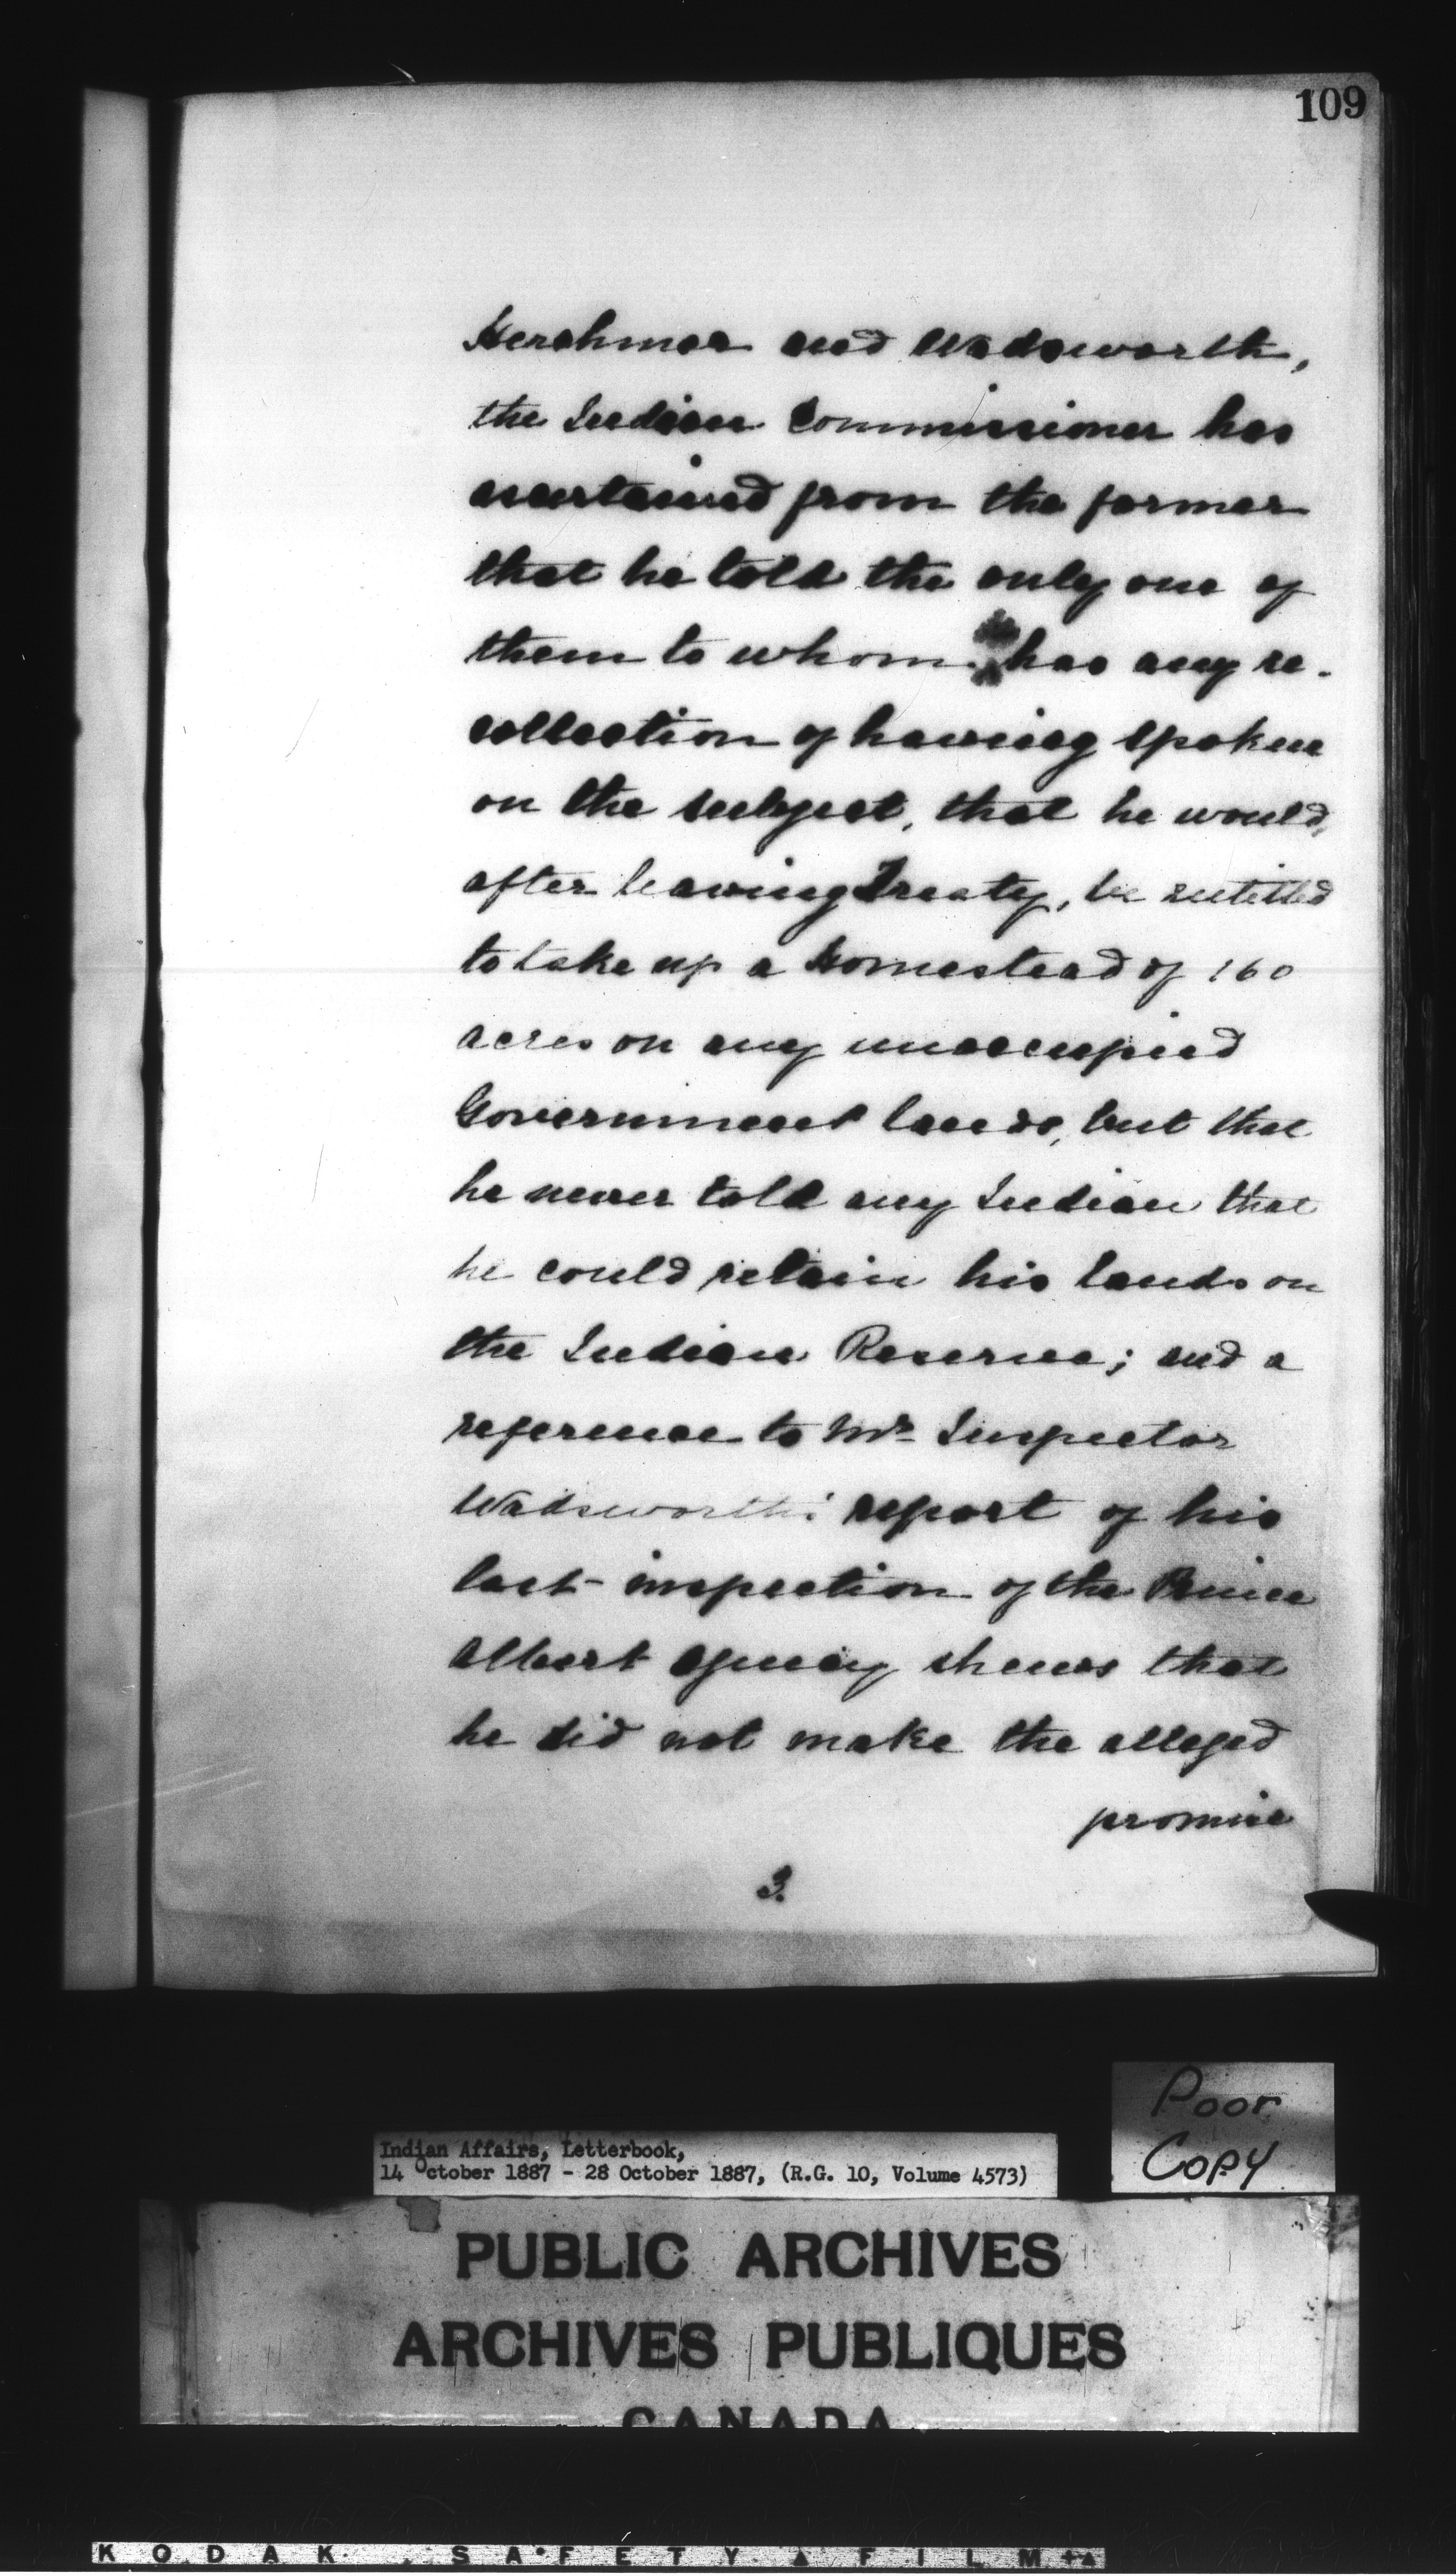 109
Herchmer and Wadsworth,
the Indian Commissioner has
ascertained from the former
that he told the only one of
them to whom has any re-
collection of having spoken
on the subject, that he would,
after leaving Treaty, be entitled
to take up a homestead of 160
acres on any unoccupied
Government lands, but that
he never told any Indian that
he could retain his lands on
the Indian Reserve; and a
reference to Mr Inspector
Wadsworth's report of his
last inspection of the Prince
Albert Agency shews that
he did not make the alleged
promise
3.
Poor
Copy
Indian Affairs, Letterbook,
14 October 1887 - 28 October 1887, (R.G. 10, Volume 4573)
PUBLIC ARCHIVES
ARCHIVES PUBLIQUES
CANADA
KODAK SAFETY FILM